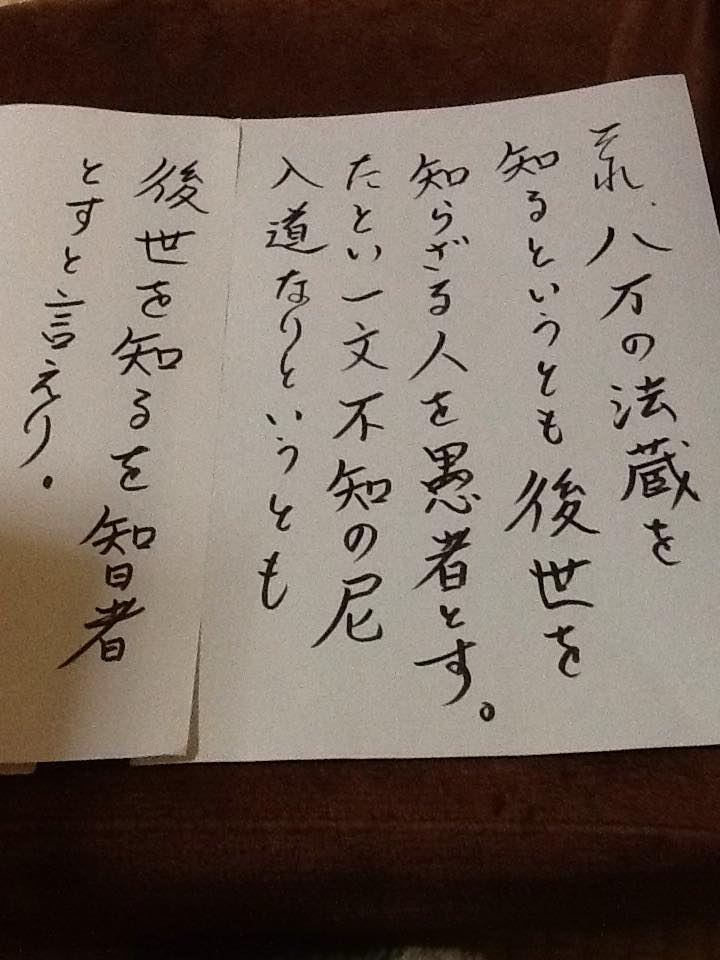 それ、八万の法蔵を
知るというとも後世を
知らざる人を愚者とす。
たとい一文不知の尼
入道なりというとも
後世を知るを智者
とすと言えり。